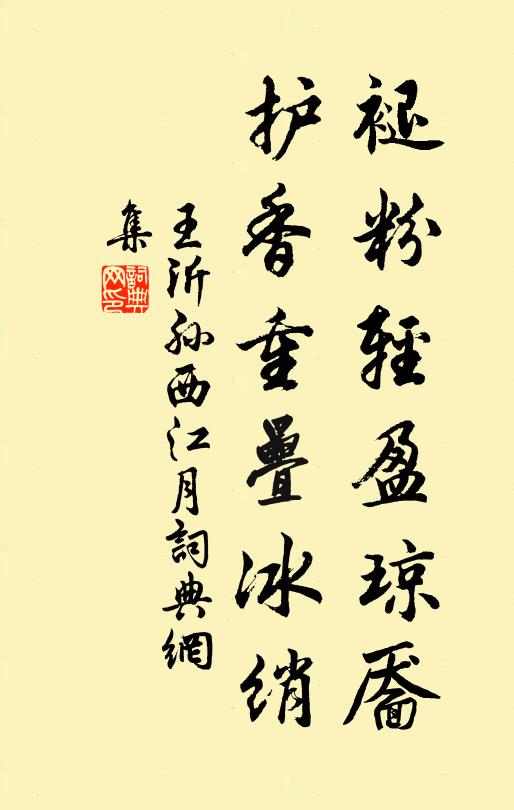 褪粉輕盈琼靥
护香重疊冰绡
王沂孙西江月詞典網
集
詞典网印